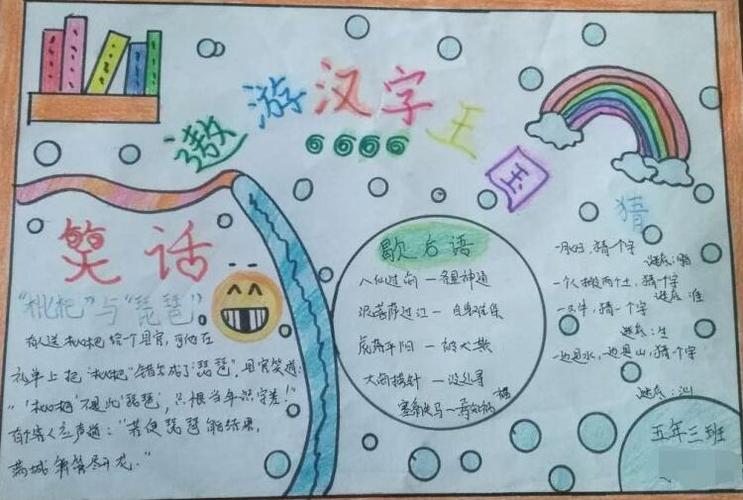 遨游汉字王国
笑话
"枇杷"与"琵琶"
有人送枇杷给一个县官,可他在
礼单上把"枇杷"错写成了"琵琶",县官笑道:
"'枇杷'不是此'琵琶',只恨当年识字差!"
有个客人应声道:"若使琵琶能结果,
满城箫管尽开花。"
歇后语
八仙过海—各显神通
泥菩萨过江—自身难保
虎落平阳—被犬欺
大海捞针—没处寻
塞翁失马—焉知祸福
猜
猜一个字
谜底:
一个人搬两个土,猜一个字
谜底:佳
一只牛,猜一个字
谜底:生
一边是水,一边是山,猜个字
谜底:汕
五年三班